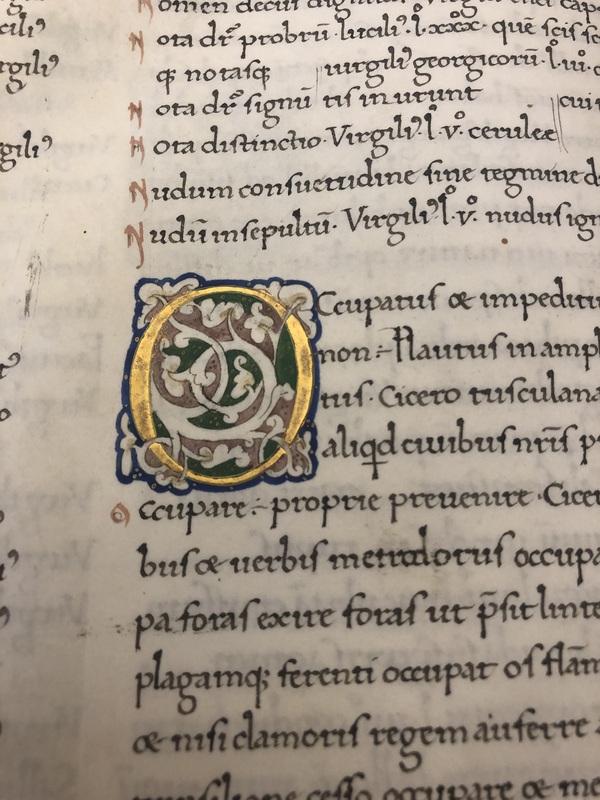 omen decuſ
N ota dr̄ probrū · lucilꝰ · l · xxx · quē sciſ
ꝙ notasꝙ virgilꝰ georgicorū · l · iii ·
N ota dr̄ signū tiſ in utunt cui
N ota distinctio · Virgilꝰ l · v · ceruleæ
N udum consuetudine sine tegmine
N udū insepultū · Virgilꝰ l · v · nuduſ ign
gilꝰ
O Ccupatuſ & impeditu
non ÷ Plautuſ in
tuſ · Cicero tusculana
aliqd ciuibuſ nr̄iſ p
O ccupare ÷ proprie preuenire · Cice
buſ & uerbiſ metrodoruſ occupa
pa foraſ exire foraſ ut p̄sit linte
plagamq; ferenti occupat oſ flām
& nisi clamoriſ regem auferre
cesso occupare & me